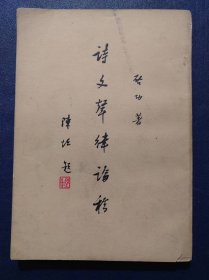 啓功著
詩文聲律論稿
陳垣題